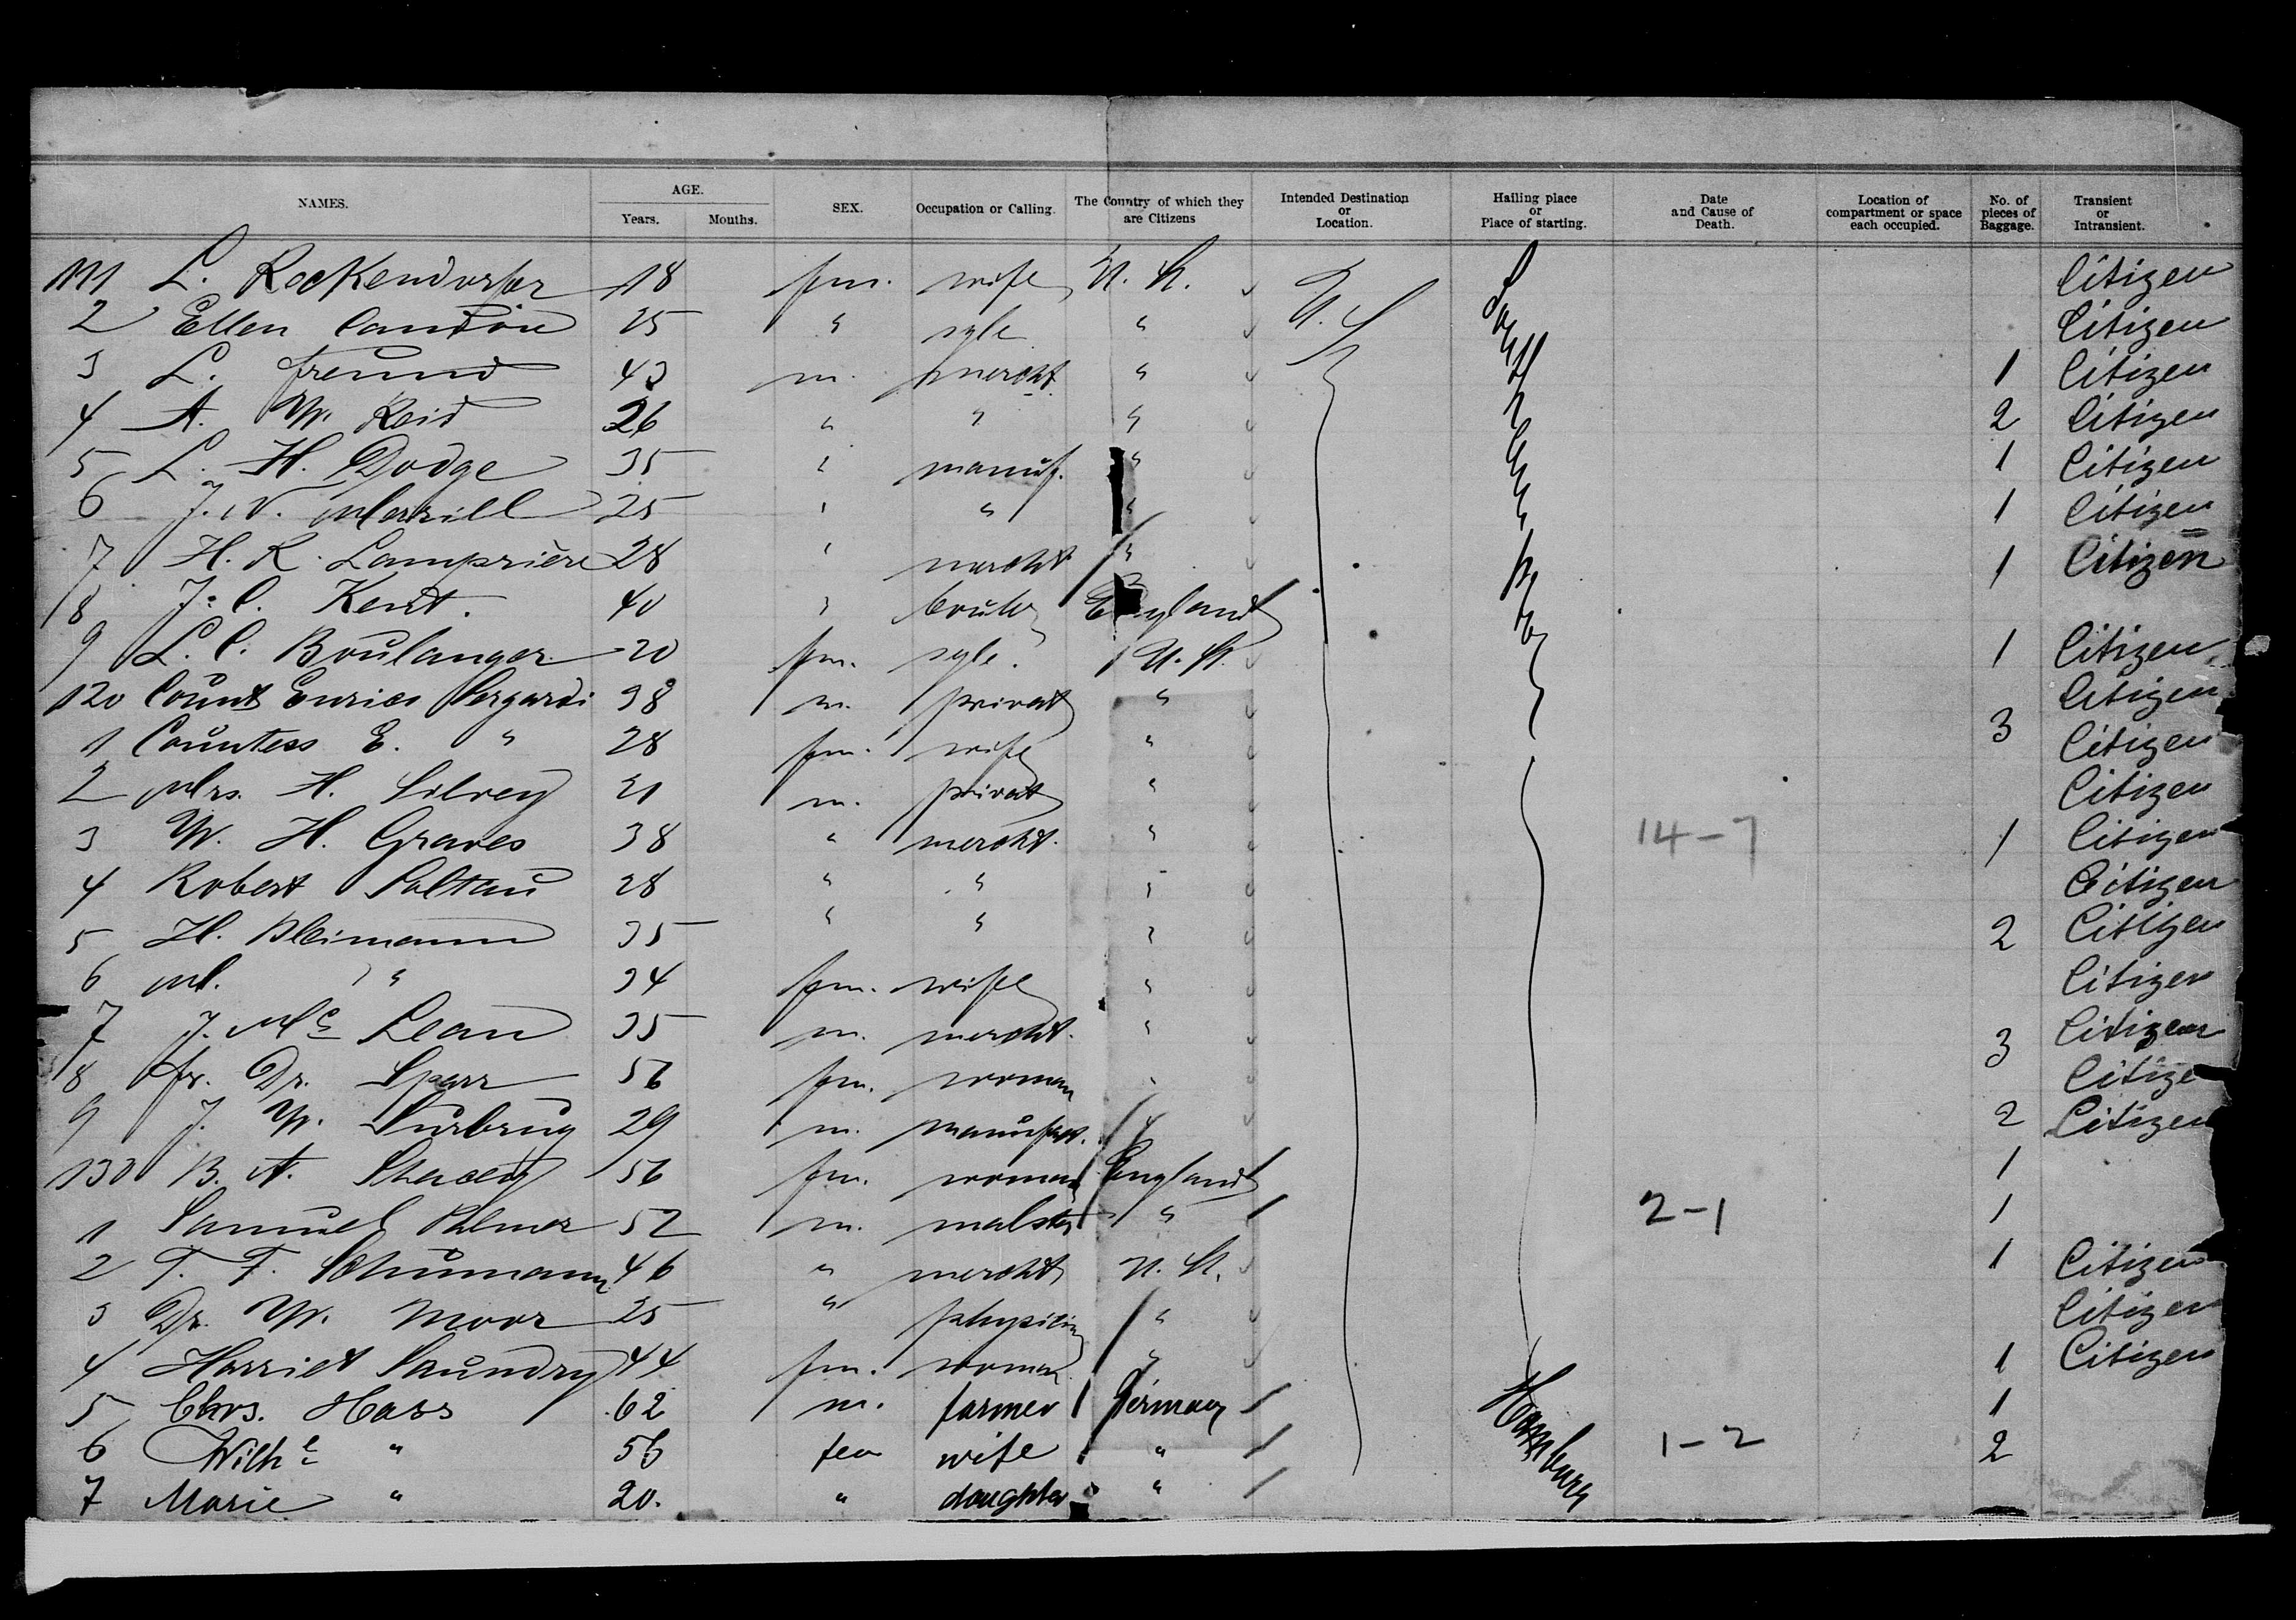 NAMES. AGE. Years. Months. SEX. Occupation or Calling. The Country of which they are Citizens Intended Destination or Location. Hailing place or Place of starting. Date and Cause of Death. Location of compartment or space each occupied. No. of pieces of Baggage. Transient or Intransient.
111 L. Rockendorfer 18 fm. wife U. St. U. S. Southampton Citizen
2 Ellen 25 " sgle " Citizen
3 L. Freund 43 m. mercht " 1 Citizen
4 A. W. Reid 26 " " " 2 Citizen
5 L. H. Dodge 35 " manuf. " 1 Citizen
6 J. N. Merrill 25 " " " 1 Citizen
7 H. R. Lamprière 28 " mercht " 1 Citizen
8 J. C. Kent. 40 " England
9 L. C. Boulanger 20 fm. sgle. U. St. 1 Citizen
120 Count Enrico Sergardi 38 m. privat " Citizen
1 Countess E. " 28 fm. wife " 3 Citizen
2 Mrs. H. Silvey 21 m. privat " Citizen
3 W. H. Graves 38 " mercht. " 14-7 1 Citizen
4 Robert Soltau 28 " " " Citizen
5 H. Bleimann 35 " " " 2 Citizen
6 M. " 34 fm. wife " Citizen
7 J. Mc Lean 35 m. mercht. " 3 Citizen
8 Fr. Dr. Sparr 56 fm. woman " Citize
9 J. W. Surbrug 29 m. manufact. " 2 Citizen
130 B. A. Stacey 56 fm. woman England 1
1 Samuel Palmer 52 m. malster " 2-1 1
2 T. F. Schumann 46 " mercht U. St. 1 Citizen
3 Dr. W. Moor 25 " physician " Citizen
4 Harriet Saundry 44 fm. woman " 1 Citizen
5 Chrs. Hass 62 m. farmer Germany Hamburg 1
6 Wilhe " 56 fem wife " 1-2 2
7 Marie " 20. " daughter "